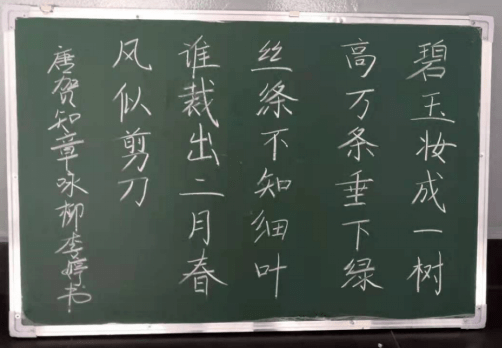 碧玉妆成一树
高万条垂下绿
丝绦不知细叶
谁裁出二月春
风似剪刀
唐贺知章咏柳李婷书